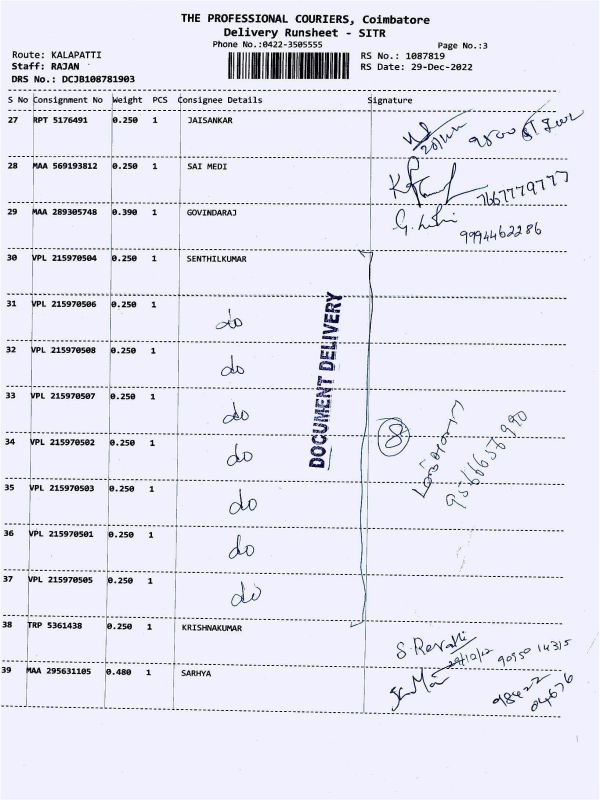 THE PROFESSIONAL COURIERS, Coimbatore
Delivery Runsheet - SITR
Phone No.:0422-3505555
Page No.:3
Route: KALAPATTI
RS No.: 1087819
Staff: RAJAN
RS Date: 29-Dec-2022
DRS No.: DCJB108781903
S No Consignment No Weight PCS Consignee Details Signature
27 RPT 5176491 0.250 1 JAISANKAR
28 MAA 569193812 0.250 1 SAI MEDI
7667779777
29 MAA 289305748 0.390 1 GOVINDARAJ
9994462286
30 VPL 215970504 0.250 1 SENTHILKUMAR
31 VPL 215970506 0.250 1 do
32 VPL 215970508 0.250 1 do
33 VPL 215970507 0.250 1 do
34 VPL 215970502 0.250 1 do
35 VPL 215970503 0.250 1 do
36 VPL 215970501 0.250 1 do
37 VPL 215970505 0.250 1 do
DOCUMENT DELIVERY
8
9566656990
38 TRP 5361438 0.250 1 KRISHNAKUMAR
S. Revathi
29/12/22 90950 14315
39 MAA 295631105 0.480 1 SARHYA
98422
04676